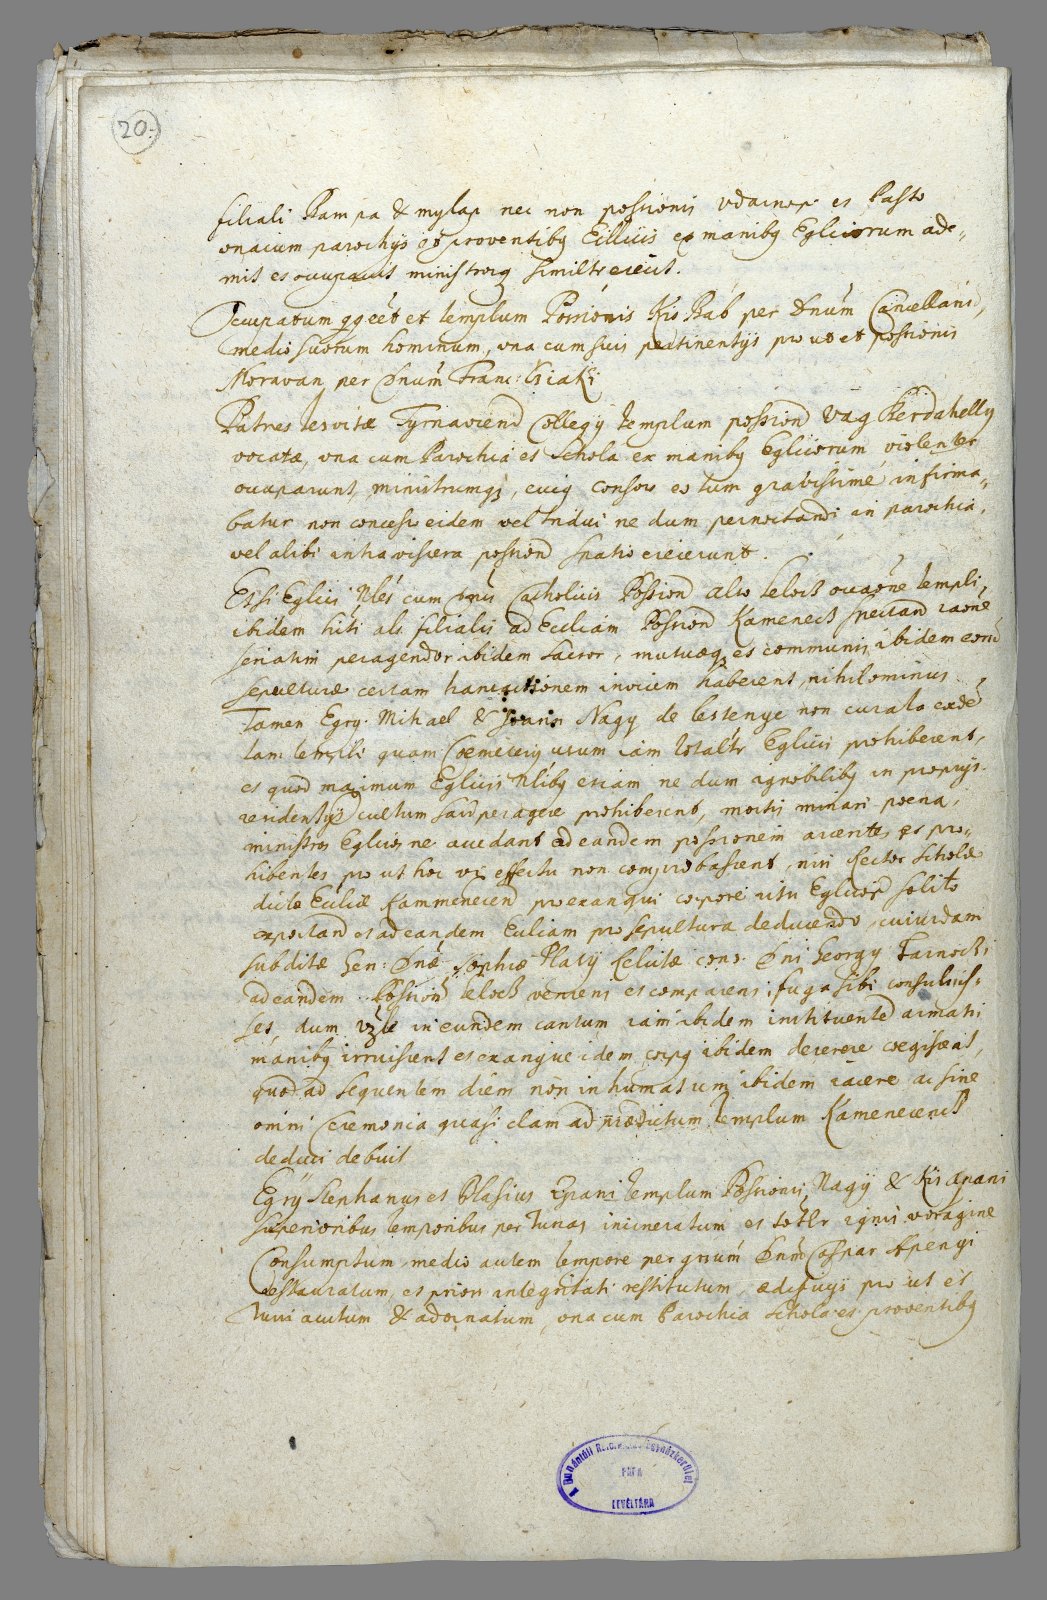 20.
filiali Rampa & mylap nec non possionis Udarnop et Pasto
onacum parochijs et proventibq Ecclicis ex manibq Eglicorum ade-
mit et occupavit ministrosq similtr eiecit.
Occupatum qqeet et templum Possionis Kis Bab per Dnum Cancellariũ,
medio suorum hominum, una cum suis pertinentijs pro ut et possionis
Moravan per Dnum Franc: Csiaki
Patres Jesvitæ Tyrnaviens Collegij templum possion Vag Kerdahelly
vocatæ, una cum Parochia et Schola ex manibq Eglicorum violenter
occuparunt, ministrumq, cuiq consors eo tum gravissime infirma-
batur non concesso eidem vel tridui ne dum pernoctandi in parochia,
vel alibi intra viscera possion spatio eiecerunt.
Etsi Eglici Nles cum Dnis Catholicis Possion Also Lelock ouaõne templi,
ibidem hiti als filialis ad Eccliam Possion Kameneck spectan raõne
seriatim peragendor ibidem sacror, mutuæq et communis ibidem eorũ
sepulturæ certam transactionem invicem haberent, nihilominus
Tamen Egry. Mihael & Joann Nagy de Lestenye non curata eadẽ
tam templi quam Cœmeterij usum iam totaltr Eglicis prohiberent,
et quod maximum Eglicis Nlibq etiam ne dum ignobilibq in proprijs
residentijs cultum sacr peragere prohiberent, mortis minari poena,
ministros Eglicos ne accedant ad eandem possionem arcentes et pro-
hibentes pro ut hoc vi effectu non comprobassent, nisi Rector Scholæ
dictæ Eccliæ Kammenecen pro exangui corpore ritu Eglicor solito
exportand et ad eandem Eccliam pro sepultura deducendo, cuiusdam
subditæ Gen: Dnæ Sophiæ Platij relictæ cons. Dni Georgy Tarnocki
ad eandem Possion Lelock veniens et comparens, fuga sibi consuluis-
set, dum uzle in eundem cantum iam ibidem instituented armatis
manibq irruissent et exangue idem corpq ibidem deserere coegissent,
quod ad sequentem diem non inhumatum ibidem iacere ac sine
omni Ceremonia quasi clam ad prædictum templum Kamenecense
deduci debuit
Egrÿ Stephanus et Blasius Apani templum Possionis Nagy & Kis Apani
superioribus temporibus per Turcas incineratum et totlr ignis voragine
Consumptum, medio autem tempore per grnum Dnum Caspar Apenyi
restauratum, et priori integritati restitutum, ædificijs pro ut et
Turri auctum & adornatum, una cum Parochia Schola et proventibq
A Dunántúli Református Egyházkerület
PÁPA
LEVÉLTÁRA